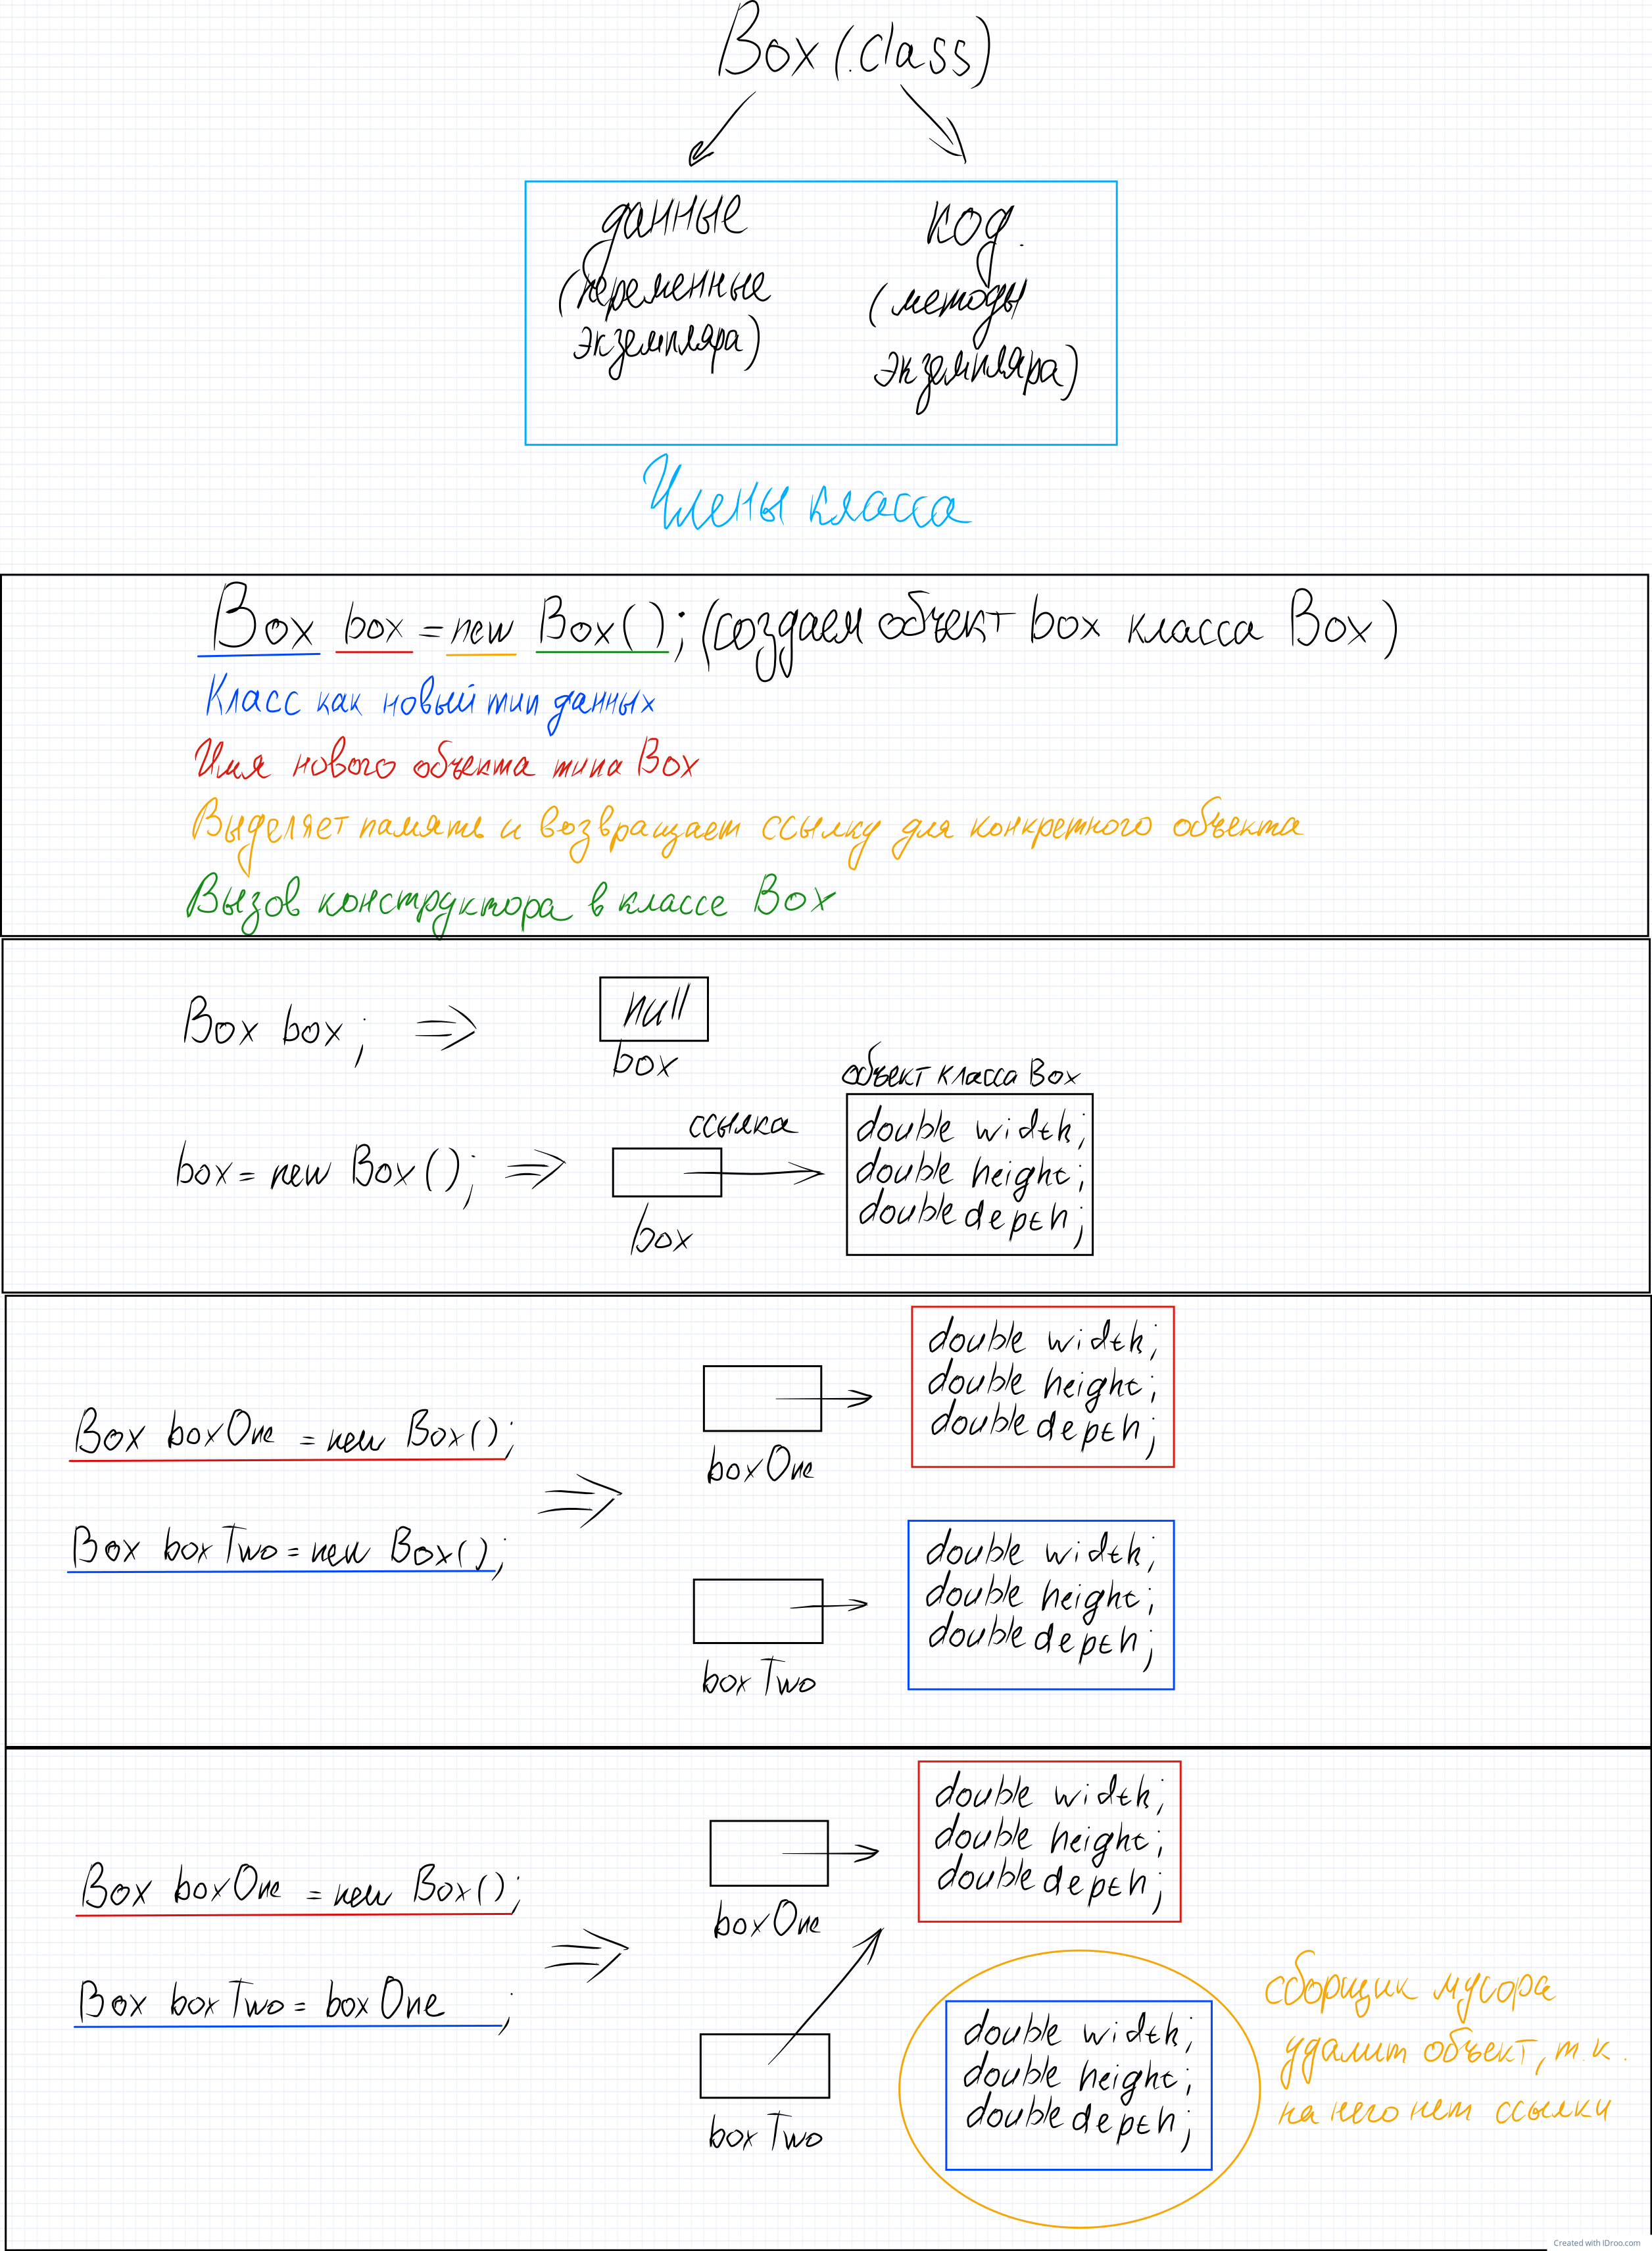 Box (.class)
данные
(переменные
экземпляра)
код.
(методы
экземпляра)
Члены класса
Box box = new Box(); (создаем объект box класса Box)
Класс как новый тип данных
Имя нового объекта типа Box
Выделяет память и возвращает ссылку для конкретного объекта
Вызов конструктора в классе Box
Box box;
null
box
box = new Box();
ссылка
box
объект класса Box
double width;
double height;
double depth;
Box boxOne = new Box();
Box boxTwo = new Box();
boxOne
double width;
double height;
double depth;
boxTwo
double width;
double height;
double depth;
Box boxOne = new Box();
Box boxTwo = boxOne ;
boxOne
double width;
double height;
double depth;
boxTwo
double width;
double height;
double depth;
сборщик мусора
удалит объект, т.к.
на него нет ссылки
Created with IDroo.com